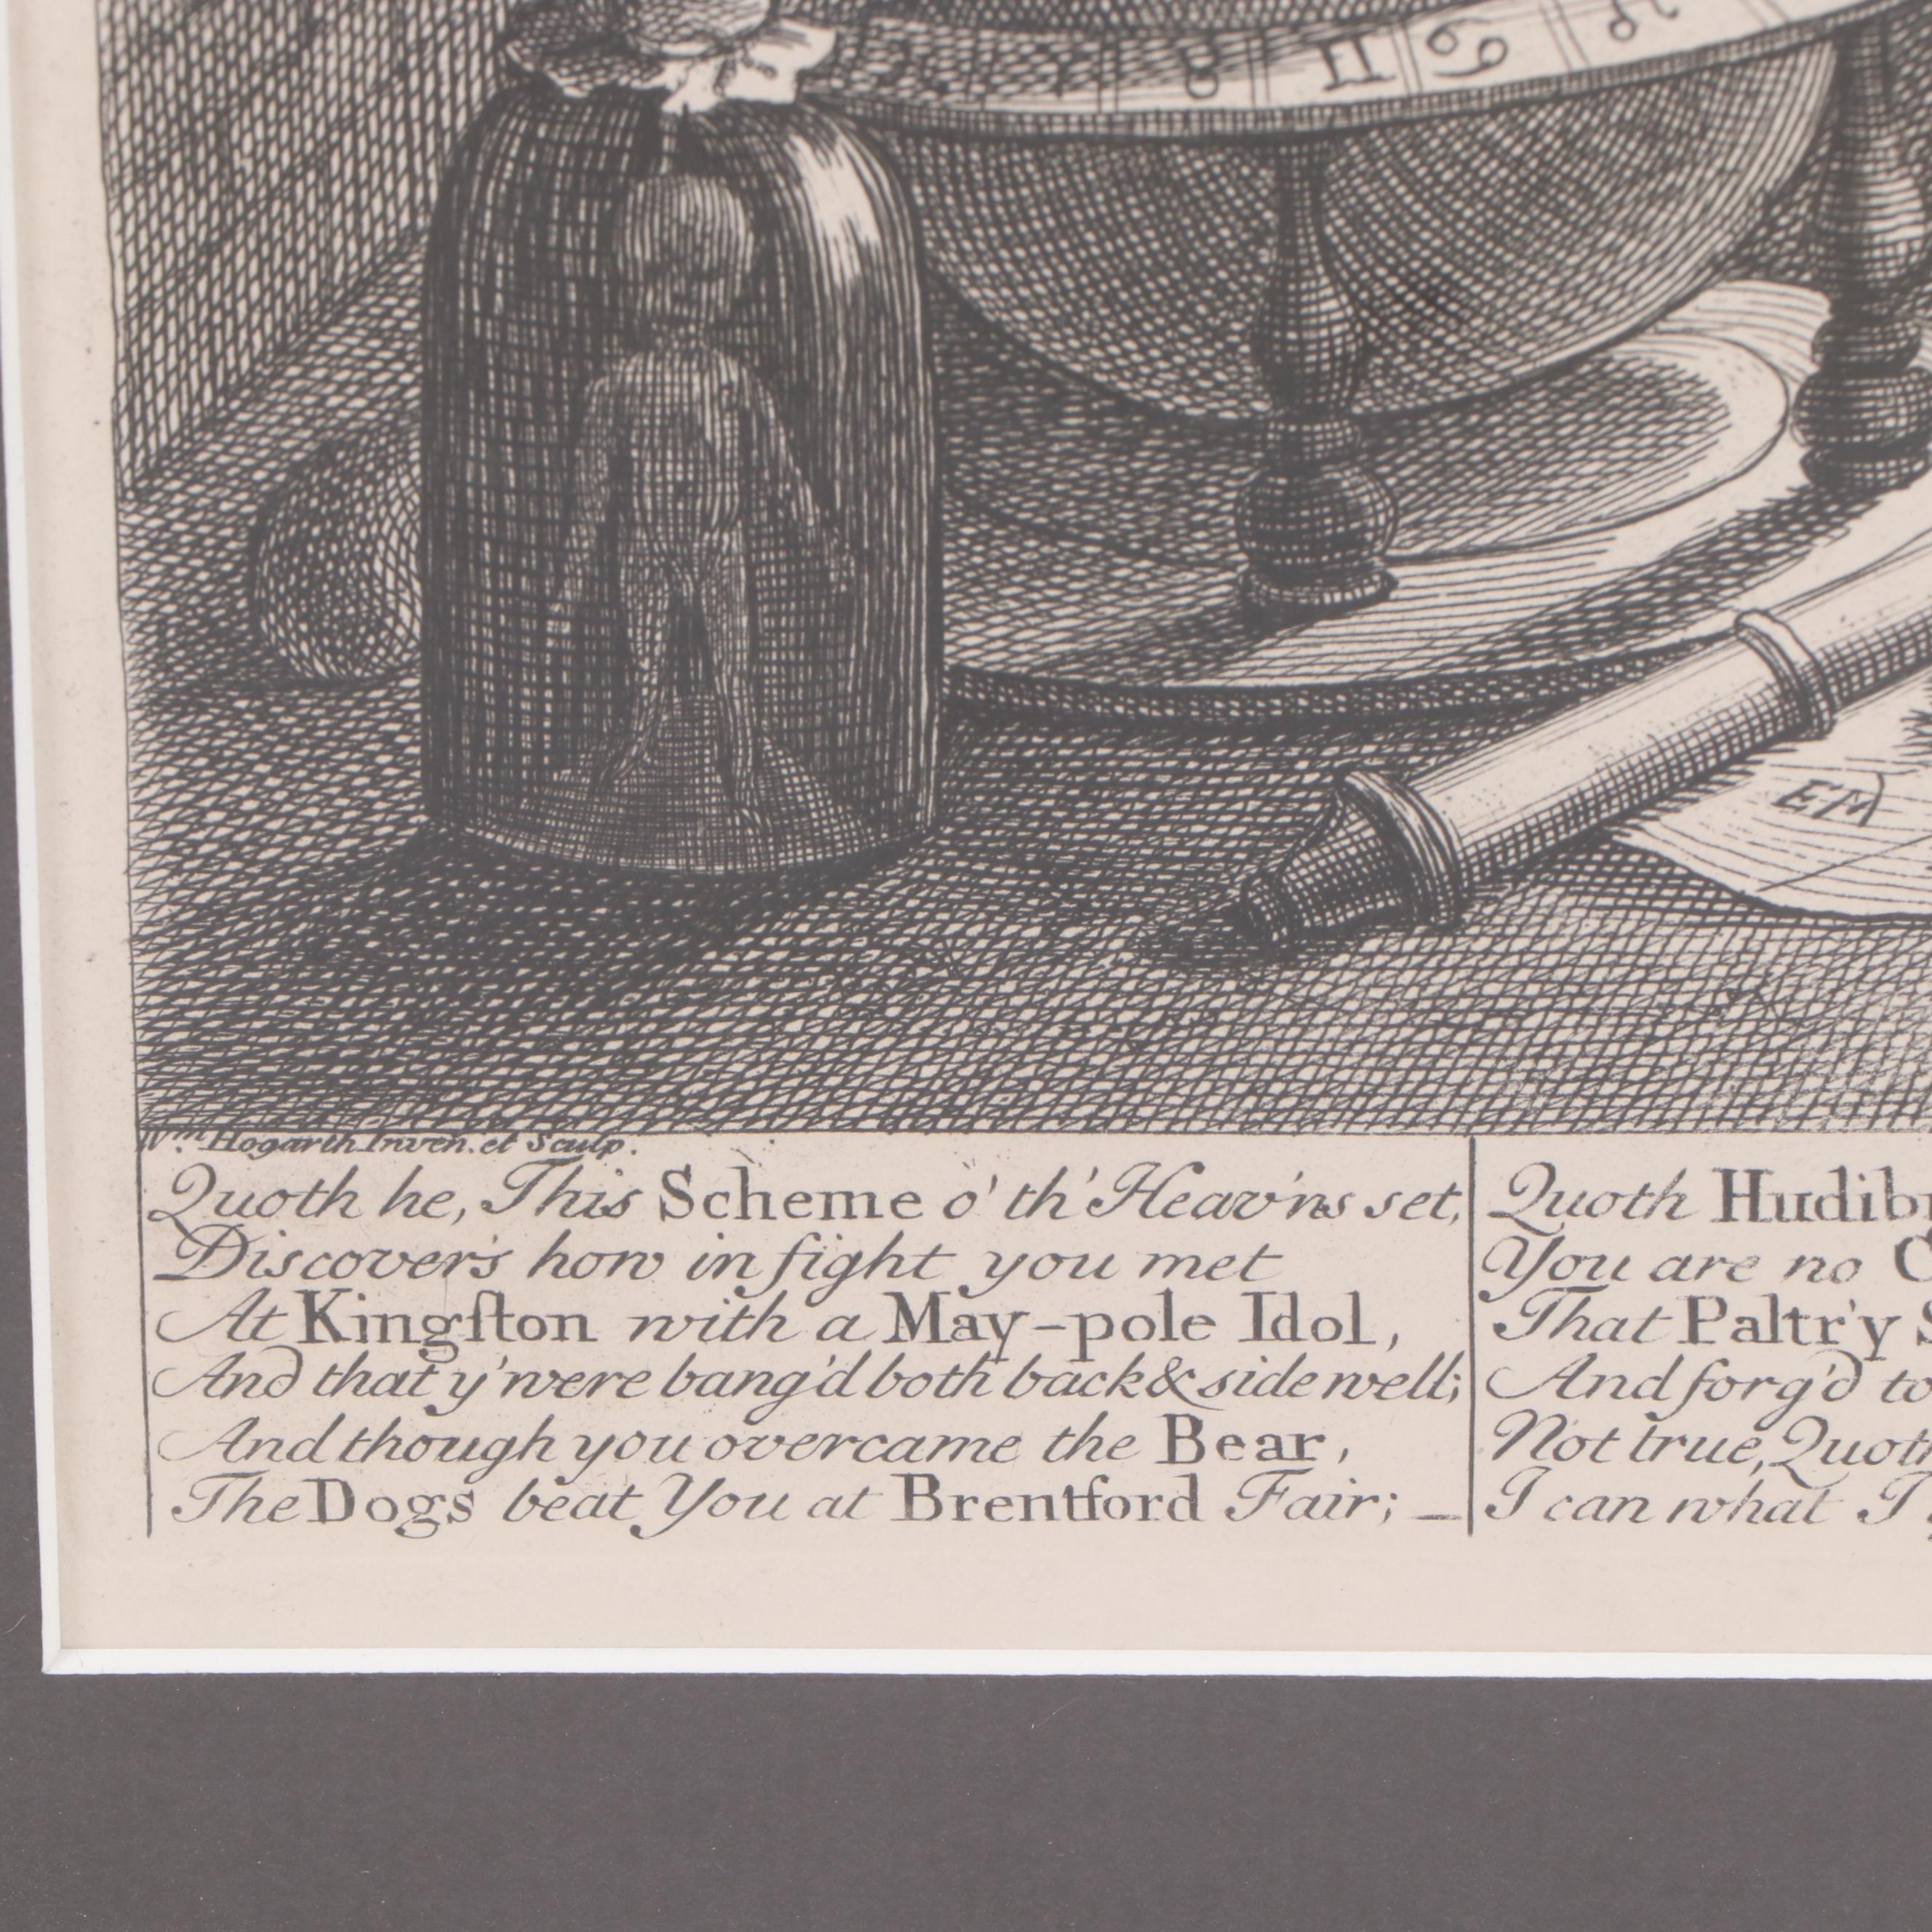 ♉ ♊ ♋ ♌
EM
Wm. Hogarth Inven. et Sculp.
Quoth he, This Scheme o' th' Heav'ns set,
Discovers how in fight you met
At Kingſton with a May-pole Idol,
And that y'were bang'd both back & side well;
And though you overcame the Bear,
The Dogs beat You at Brentford Fair; —
Quoth
You are no
That Paltr'y
And forg'd to
Not true,
I can what